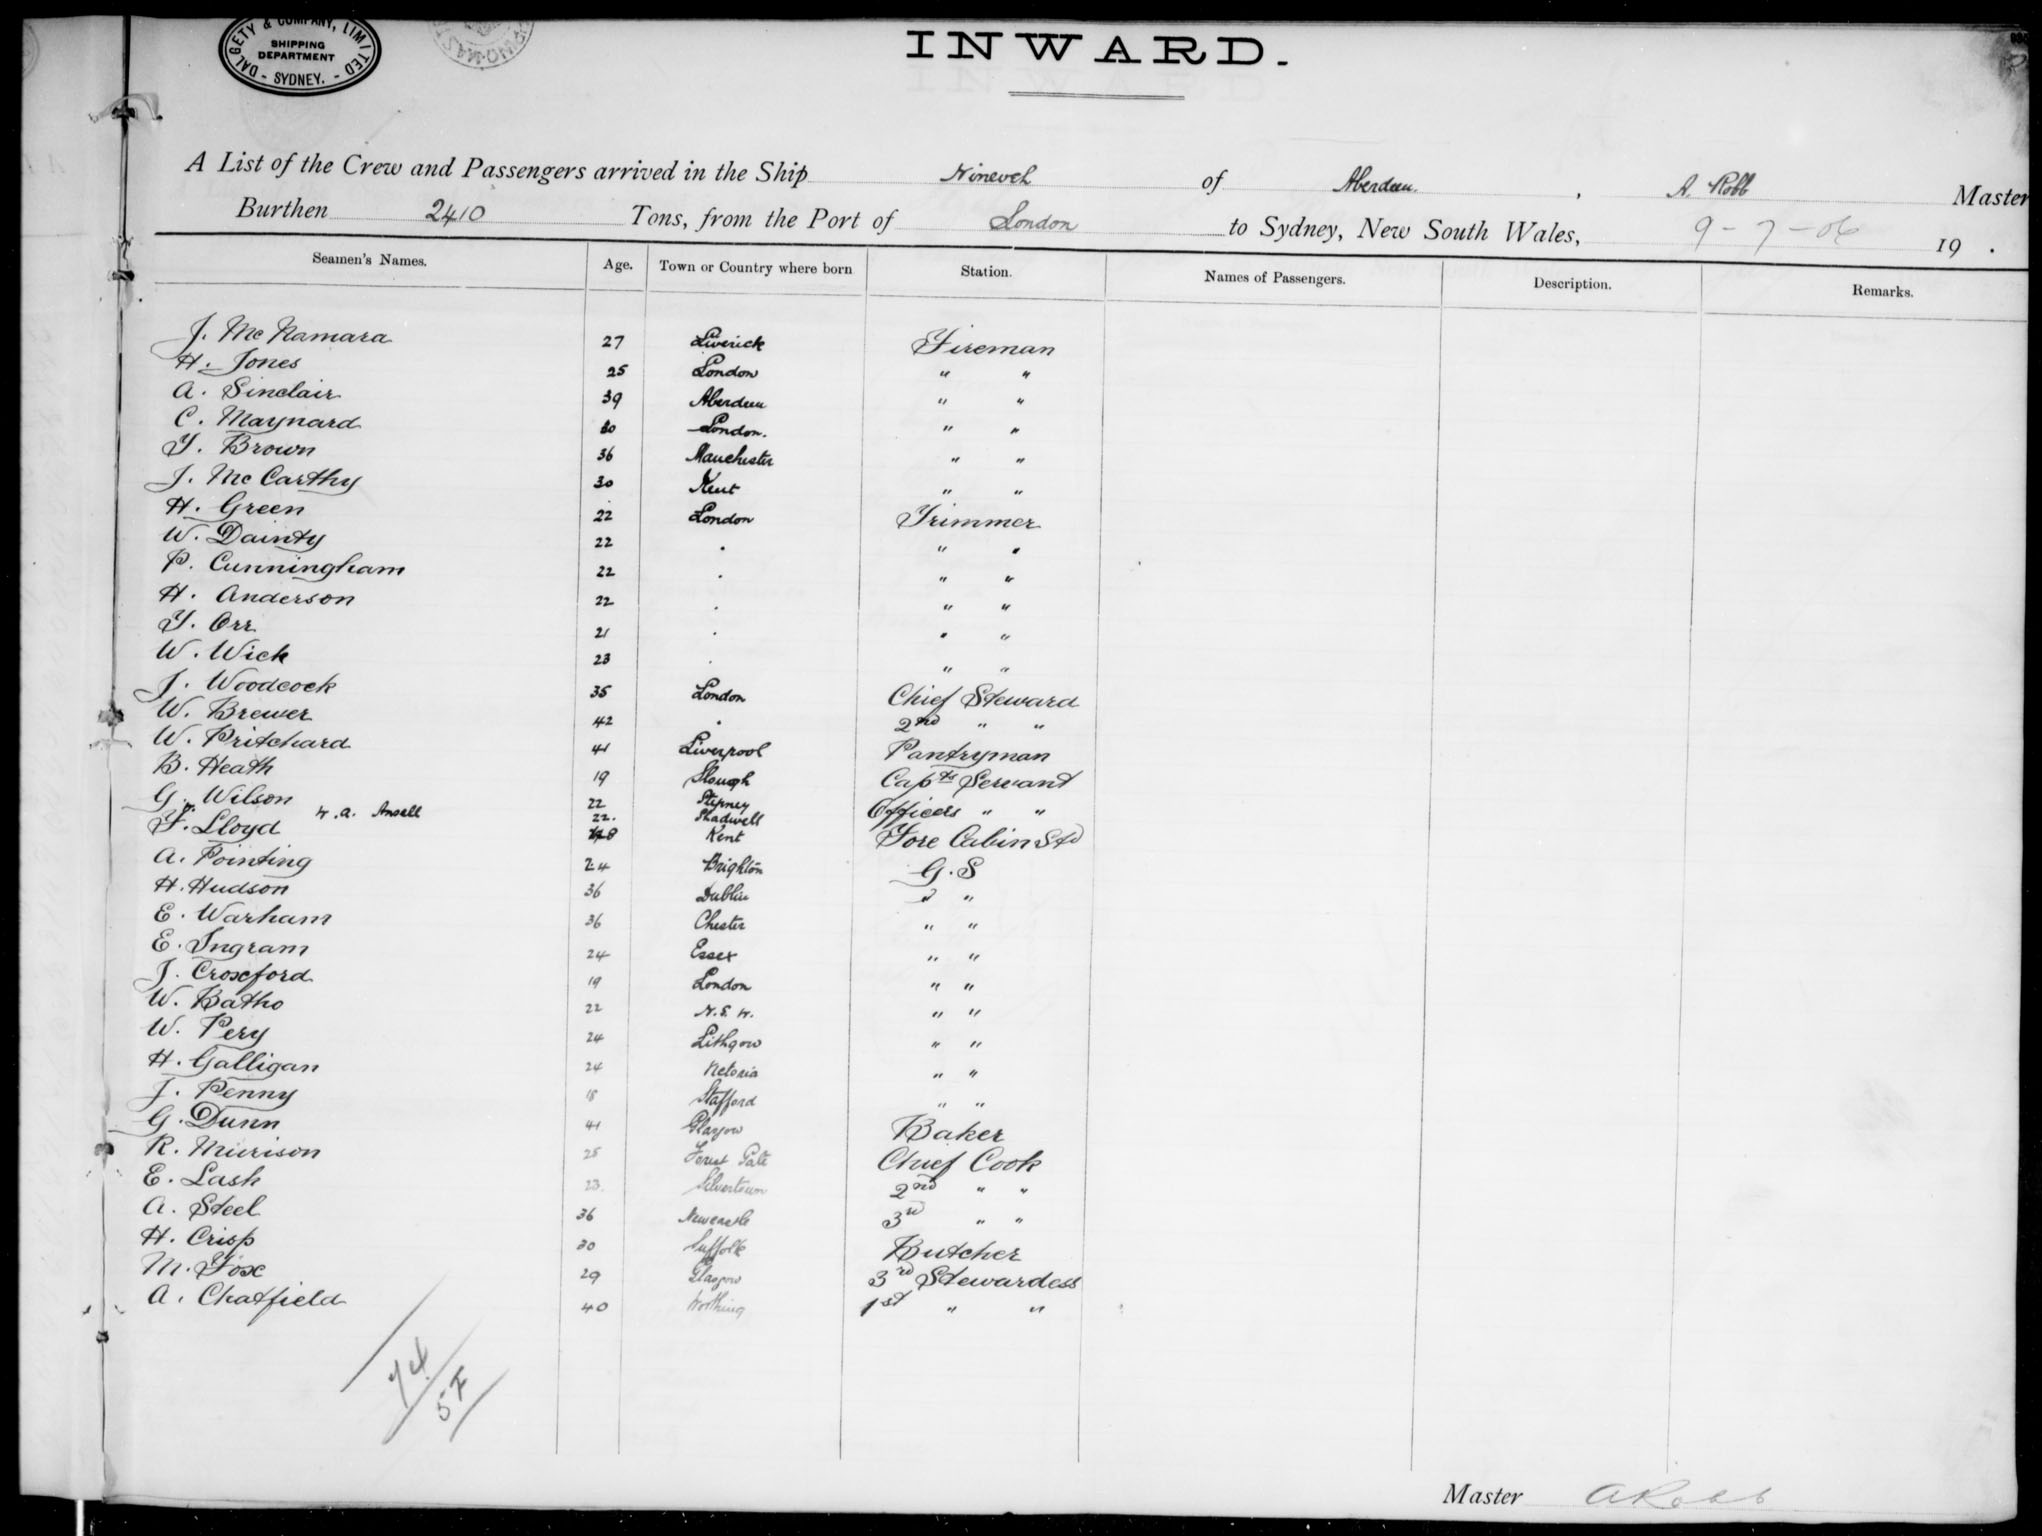 DALGETY & COMPANY, LIMITED
SHIPPING
DEPARTMENT
- SYDNEY. -
INWARD.
A List of the Crew and Passengers arrived in the Ship Nineveh of Aberdeen, A. Robb Master
Burthen 2410 Tons, from the Port of London to Sydney, New South Wales, 9-7-06 19 .
Seamen's Names. Age. Town or Country where born Station. Names of Passengers. Description. Remarks.
J. McNamara 27 Liverick Fireman
H. Jones 25 London " "
A. Sinclair 39 Aberdeen " "
C. Maynard 30 London. " "
T. Brown 36 Manchester " "
J. McCarthy 30 Kent " "
H. Green 22 London Trimmer
W. Dainty 22 " " "
P. Cunningham 22 " " "
H. Anderson 22 " " "
T. Orr 21 " " "
W. Wick 23 " " "
J. Woodcock 35 London Chief Steward
W. Brewer 42 " 2nd " "
W. Pritchard 41 Liverpool Pantryman
B. Heath 19 Slough Capts Servant
G. Wilson 22 Stepney Officers " "
W. A. Ansell 22. Shadwell
F. Lloyd Kent Fore Cabin Std
A. Pointing 24 Brighton G.S
H. Hudson 36 Dublin " "
E. Warham 36 Chester " "
E. Ingram 24 Essex " "
J. Croxford 19 London " "
W. Batho 22 N.S.W. " "
W. Pery 24 Lithgow " "
H. Galligan 24 Victoria " "
J. Penny 18 Stafford " "
G. Dunn 41 Glasgow Baker
R. Murison 25 Forest Gate Chief Cook
E. Lash 23. Silvertown 2nd " "
A. Steel 36 Newcastle 3rd " "
H. Crisp 30 Suffolk Butcher
M. Fox 29 Glasgow 3rd Stewardess
A. Chatfield 40 Worthing 1st " "
74
57
Master A Robb